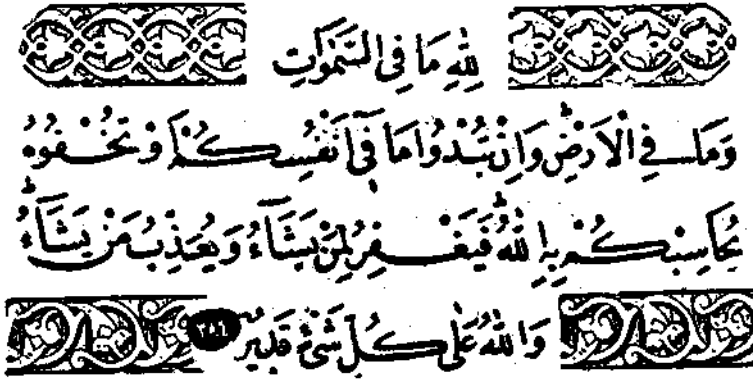 لِلّٰهِ مَا فِي السَّمٰوَاتِ
وَمَا فِي الْاَرْضِ وَاِنْ تُبْدُوا مَا فِٓي اَنْفُسِكُمْ اَوْ تُخْفُوهُ
يُحَاسِبْكُمْ بِهِ اللّٰهُ فَيَغْفِرُ لِمَنْ يَشَٓاءُ وَيُعَذِّبُ مَنْ يَشَٓاءُ
وَاللّٰهُ عَلٰى كُلِّ شَيْءٍ قَدِيرٌ